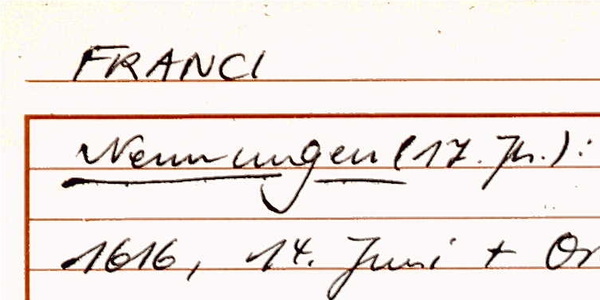 FRANCI
Nennungen (17. Jh.):
1616, 14. Juni + Or